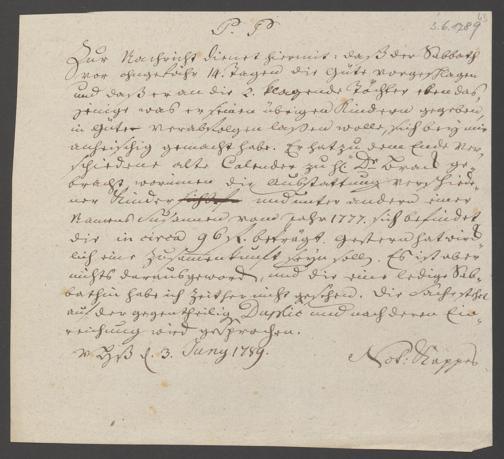 3.6.1789
P. P.
Zur Nachricht dienet hiermit: daß der Sebbath
vor ohngefehr 14. Tagen die Güte vorgeschlagen
und daß er an die 2. klagende Töchter eben das,
jenige was er seinen übrigen Kindern gegeben,
in Güte verabfolgen lassen wolle, sich bey mir
anheischig gemacht habe. Er hat zu dem Ende ver,
schiedene alte Calender zu H. Dr. ge,
bracht, worinnen die Ausstattung verschiede,
ner Kinder und unter andern einer
Namens Susannen vom Jahr 1777. sich befindet
die in circa 96 f. beträgt. Gestern hat
lich eine Zusammenkunft seyn sollen. Es ist aber
nichts daraus geworden, und die eine ledige Seb,
bathin habe ich zeither nicht gesehen. Die Sache steht
auf der gegentheilig Duplic und nach deren Ein,
reichung wird gesprochen.
d. 3. Juny 1789.
Not: Kappes